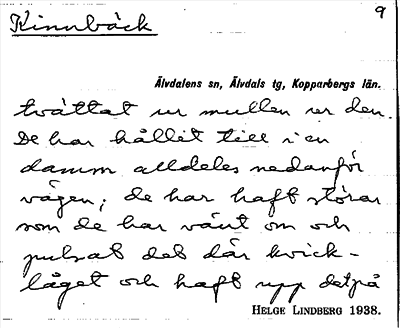 Kinnbäck
9
Älvdalens sn, Älvdals tg, Kopparbergs län.
tvättat ur mullen ur den.
De har hållit till i en
damm alldeles nedanför
vägen; de har haft störar
som de har vänt om och
pulsat det där kvick-
låget och haft upp det på
HELGE LINDBERG 1938.